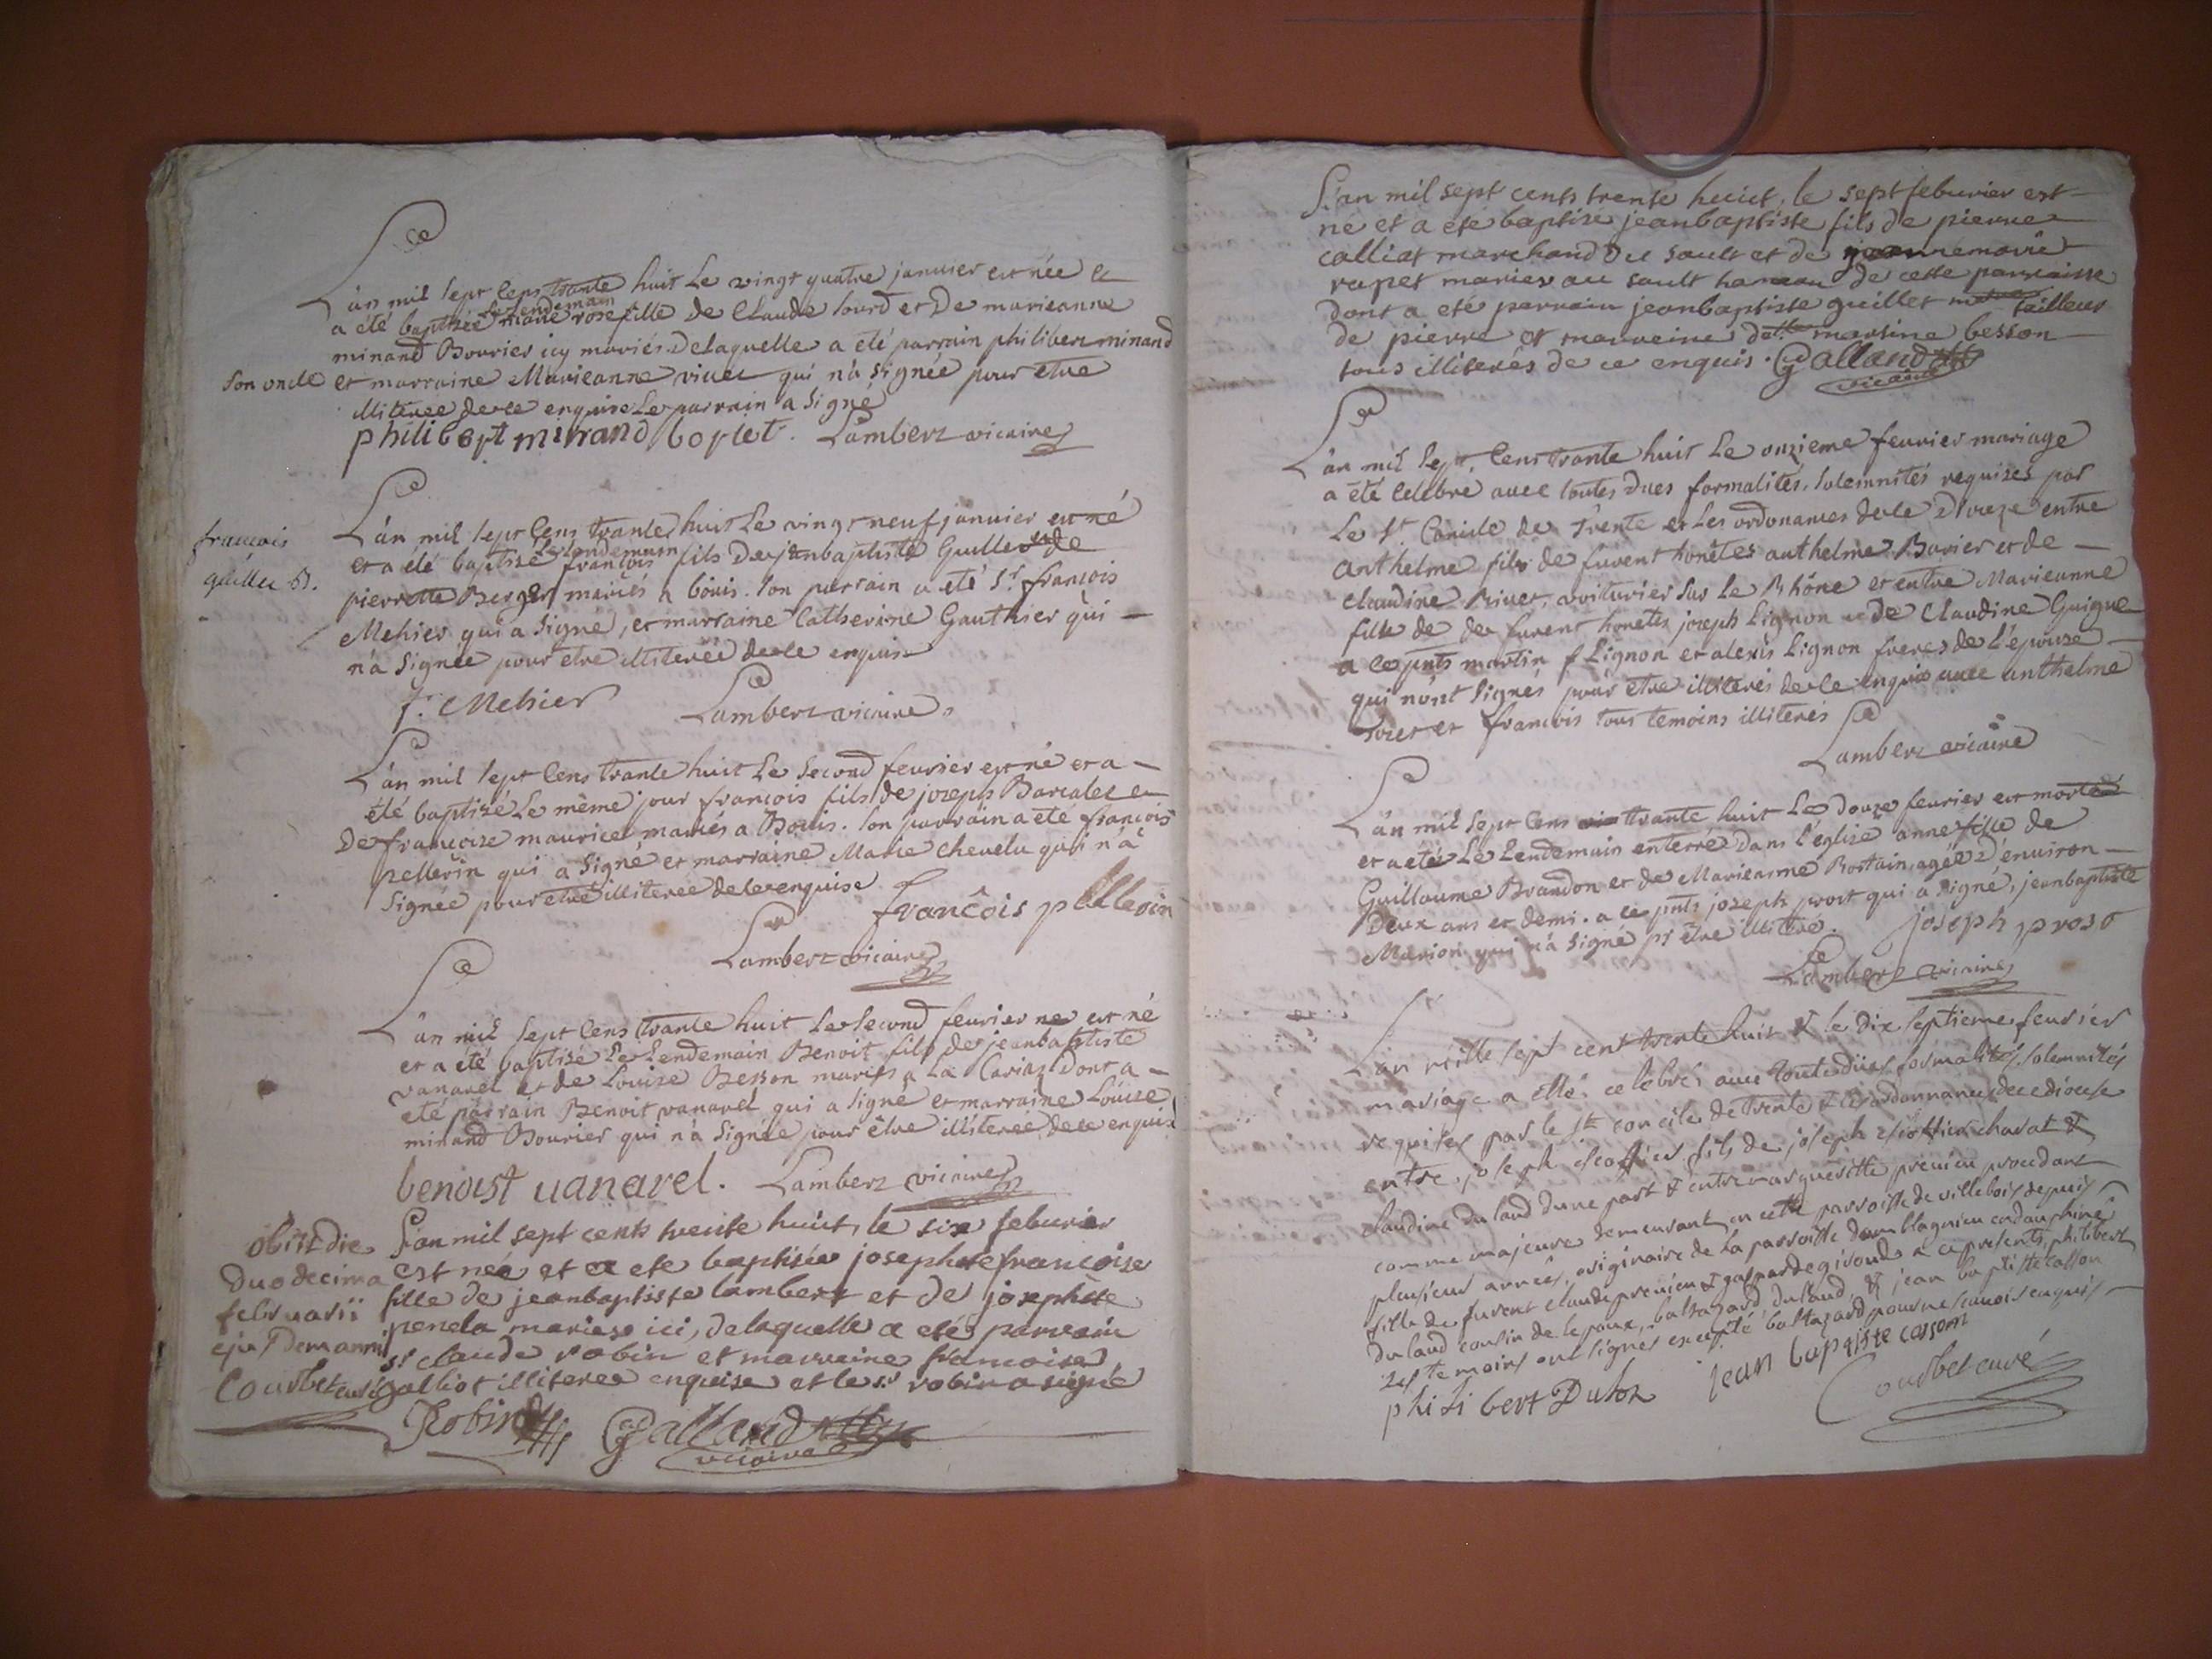 L'an mil sept cens trante huit Le vingt quatre januier est née et
a été baptisée Le Lendemain marie rose fille de Claude lourd et De marieanne
minand Bourier icy mariés. De laquelle a été parrain philibert minand
son oncle et marraine Marieanne viuet qui n'a signée pour etre
illiterée de ce enquise Le parrain a signé
philibert minand borlet. Lambert vicaire
francois
guillet B.
L'an mil sept cens trante huit Le vingt neuf januier est né
et a été baptisé Le Lendemain francois fils De jeanbaptiste Guillet et de
pierrette Berger mariés a bouis. son parrain a été Sr. francois
Mehier qui a signé, et marraine Catherine Gauthier qui -
n'a signée pour etre illiterée de ce enquise
f. Mehier Lambert vicaire
L'an mil sept cens trante huit Le second feurier est né et a -
été baptisé Le même jour francois fils de joseph Barcalet et
De francoise maurice mariés a Bouis. son parrain a été francois
pellerin qui a signé et marraine Marie chevelu qui n'a
signée pour etre illiterée de ce enquise
francois pellerin
Lambert vicaire
L'an mil sept cens trante huit Le second feurier ne est né
et a été baptisé Le Lendemain Benoit fils de jeanbaptiste
vanarel et de Louise Besson mariés a La Caria Dont a -
été parrain Benoit vanarel qui a signé et marraine Louise
minand Bourier qui n'a signée pour être illiterée de ce enquise
benoist uanarel. Lambert vicaire
obiit die
duodecima
februarii
ejusdem anni
Courbet curé
L'an mil sept cents trente huict, le six feburier
est née et a ete baptisée josephte francoise
fille de jeanbaptiste lambert et de josephte
penela mariés ici, de laquelle a eté parrain
sr claude robin et marraine francoise
galliot illiteree enquise et le sr robin a signé
Robin Galland
vicaire
L'an mil sept cents trente huict, le sept feburier est
né et a eté baptisé jeanbaptiste fils de pierre
calliat marchand du sault et de jeannemarie
rapet mariés au sault hameau de cette parroisse
dont a eté parrain jeanbaptiste guillet tailleur
de pierre et marraine dlle marsine besson
tous illiterés de ce enquis. Galland
vicaire
L'an mil sept cens trante huit Le onzieme feurier mariage
a été celebré auec toutes dues formalités, solemnités requises par
Le St. Concile de Trente et Les ordonances de ce Dioceze entre
anthelme fils de furent honêtes anthelme Burier et de -
claudine Riuet, voiturier sur Le Rhône et entre Marieanne
fille de de furent honêtes joseph Lignon et de Claudine Guigue
a ce pnts martin f Lignon et alexis Lignon freres de L'epouse -
qui n'ont signés pour etre illiterés de ce enquis auec anthelme
et francois tous temoins illiterés
Lambert vicaire
L'an mil sept cens trante huit Le Douze feurier est morte
et a été Le Lendemain enterré Dans l'église anne fille de
Guillaume Brandon et de Marieanne Rostain, agée D'enuiron -
Deux ans et demi. a ce pnts joseph prost qui a signé, jeanbaptiste
Marion qui n'a signé pr être illitéré. joseph prost
Lambert vicaire
L'an mille sept cent trente huit & le dix septieme feurier
mariage a etté celebré auec toute düe formalités, solemnités
requises par le st concile de trente & les ordonnances de ce diocese
entre joseph escoffier fils de joseph escoffier charat &
claudine duland dune part & entre margueritte premier procedant
comme majeure demeurant en cette parroisse de villebois depuis
plusieurs années, originaire de la parroisse damblagnieu en dauphiné
fille de furent claude premier & gasparde giroud a ce presents philibert
duland cousin de lepoux, baltazard duland & jean baptiste casson
les temoins ont signés excepté baltazard pour ne scauoir enquis
philibert Dulon jean baptiste casson
Courbet curé